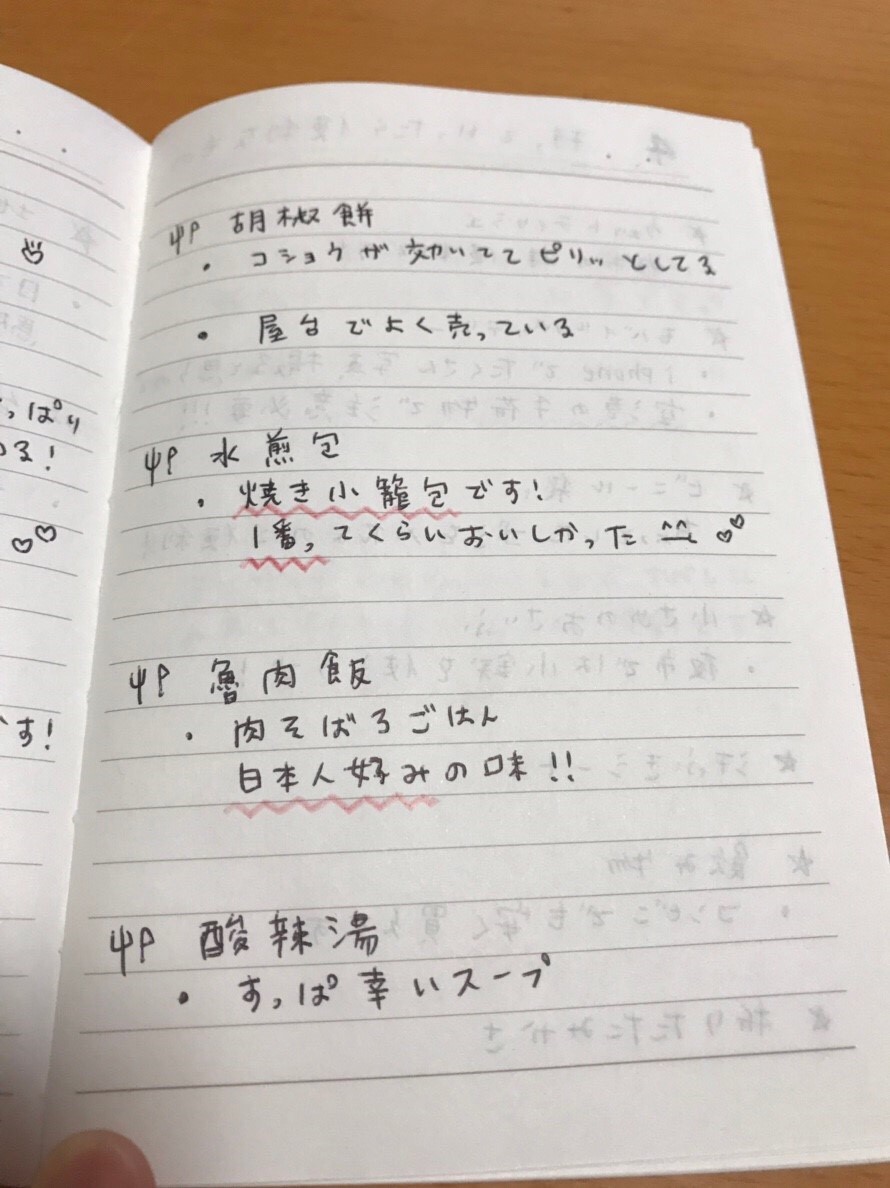 胡椒餅
・コショウが効いてて ピリッとしてる
・屋台でよく売っている
水煎包
・焼き小籠包です!
1番ってくらいおいしかった ^^ ♡♡
魯肉飯
・肉そぼろごはん
日本人好みの味!!
酸辣湯
・すっぱ幸いスープ
っぱり
る!
♡♡
す!